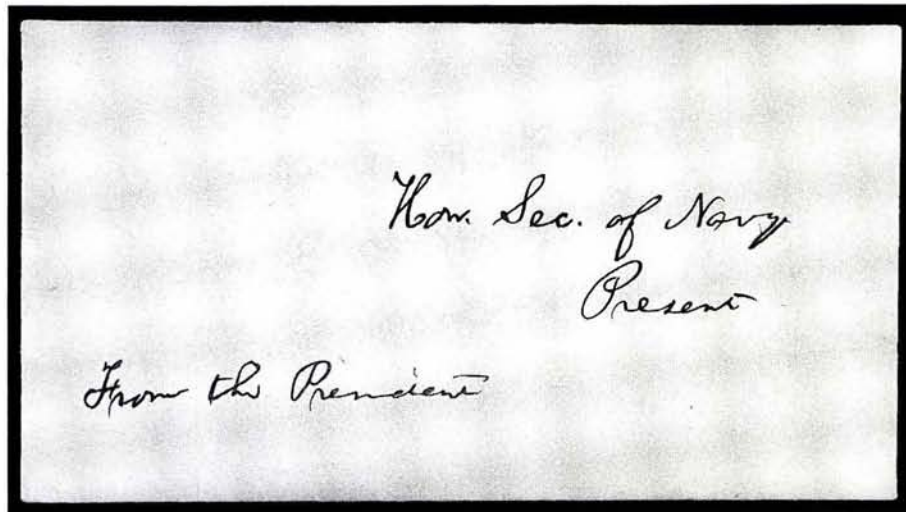 Hon. Sec. of Navy
Present
From the President